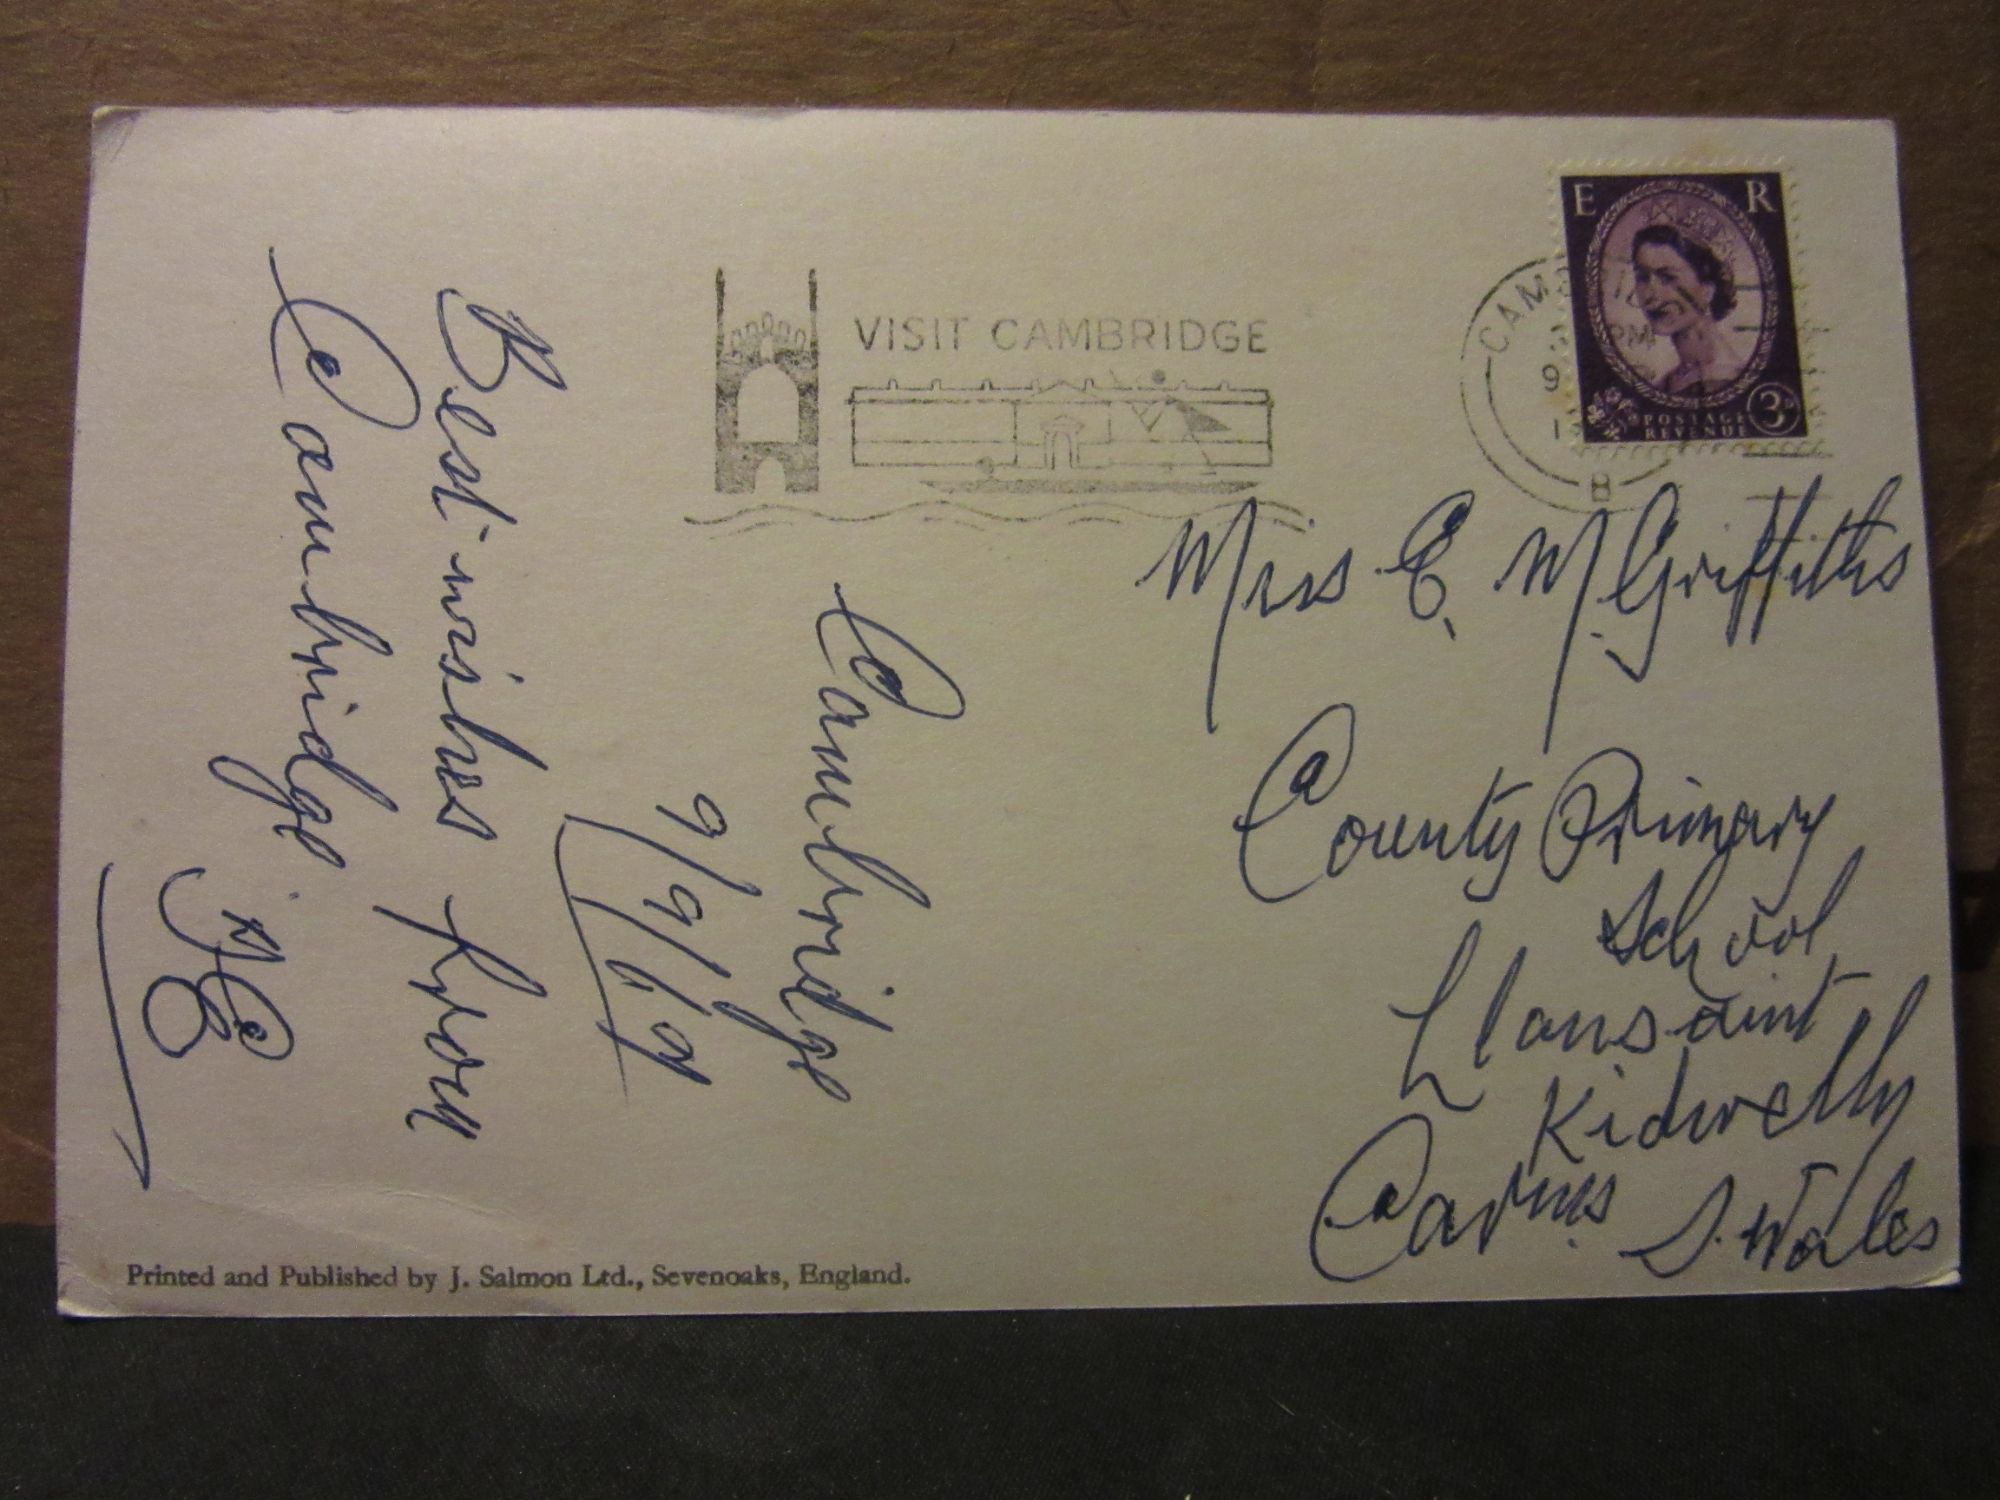 Cambridge
9/9/69
Best wishes from
Cambridge
VISIT CAMBRIDGE
CAM
PM
9
E R
POSTAGE
REVENUE
3D
Miss E. M. Griffiths
County Primary
School
Llansaint
Kidwelly
Carms S. Wales
Printed and Published by J. Salmon Ltd., Sevenoaks, England.